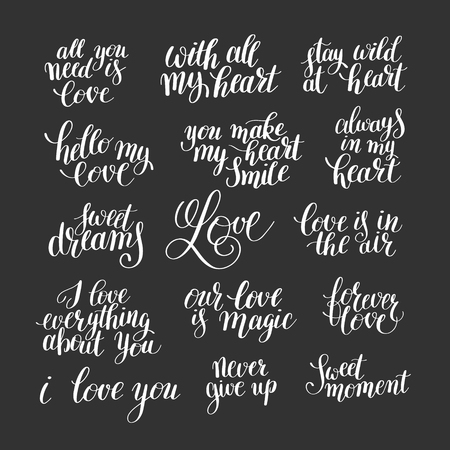 all you
need is
love
with all
my heart
stay wild
at heart
hello my
love
you make
my heart
smile
always
in my
heart
sweet
dreams
Love
love is in
the air
I love
everything
about You
our love
is Magic
forever
love
i love you
Never
give up
Sweet
moment